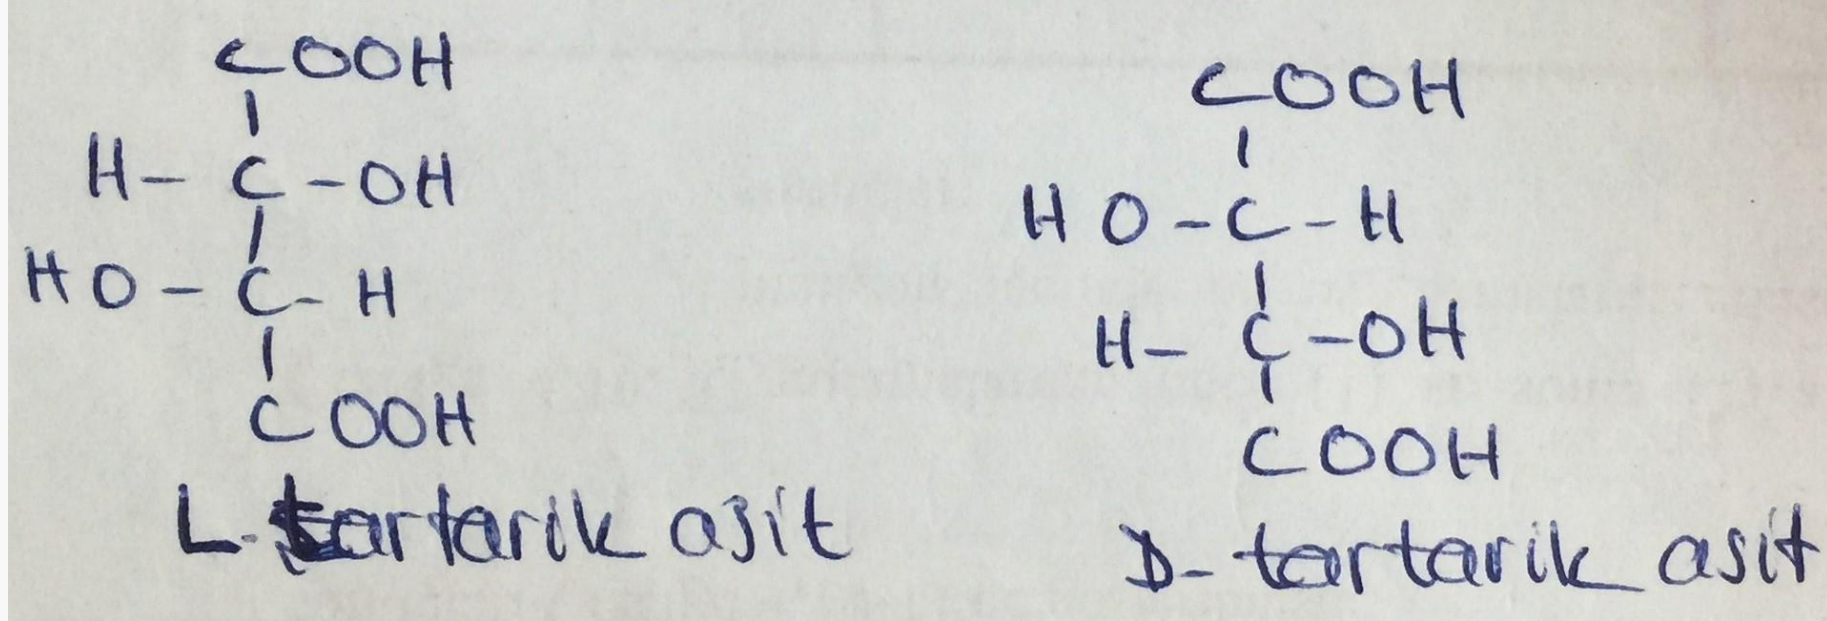 COOH
H - C - OH
HO - C - H
COOH
L-tartarik asit
COOH
HO - C - H
H - C - OH
COOH
D-tartarik asit